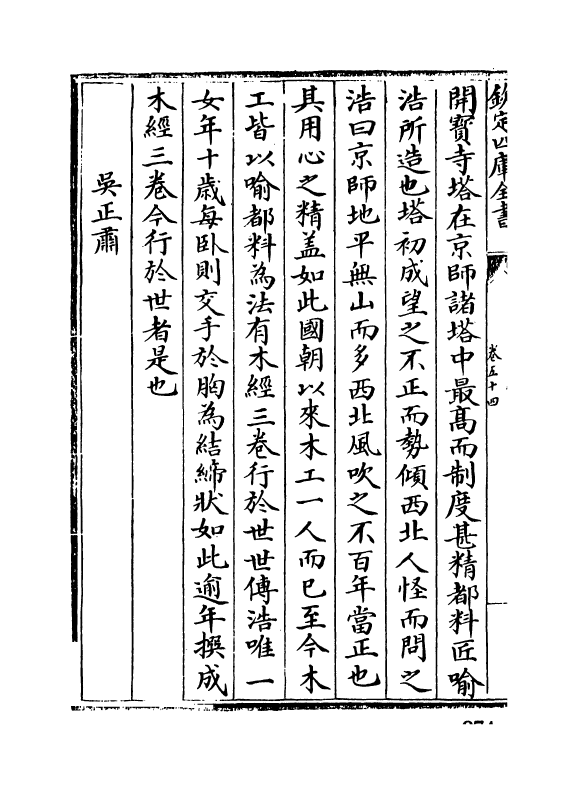 欽定四庫全書
卷五十四
開寶寺塔在京師諸塔中最髙而制度甚精都料匠喻
浩所造也塔初成望之不正而勢傾西北人怪而問之
浩曰京師地平無山而多西北風吹之不百年當正也
其用心之精盖如此國朝以來木工一人而已至今木
工皆以喻都料為法有木經三卷行於世世傳浩唯一
女年十歲每卧則交手於胸為結締狀如此逾年撰成
木經三卷今行於世者是也
吳正肅